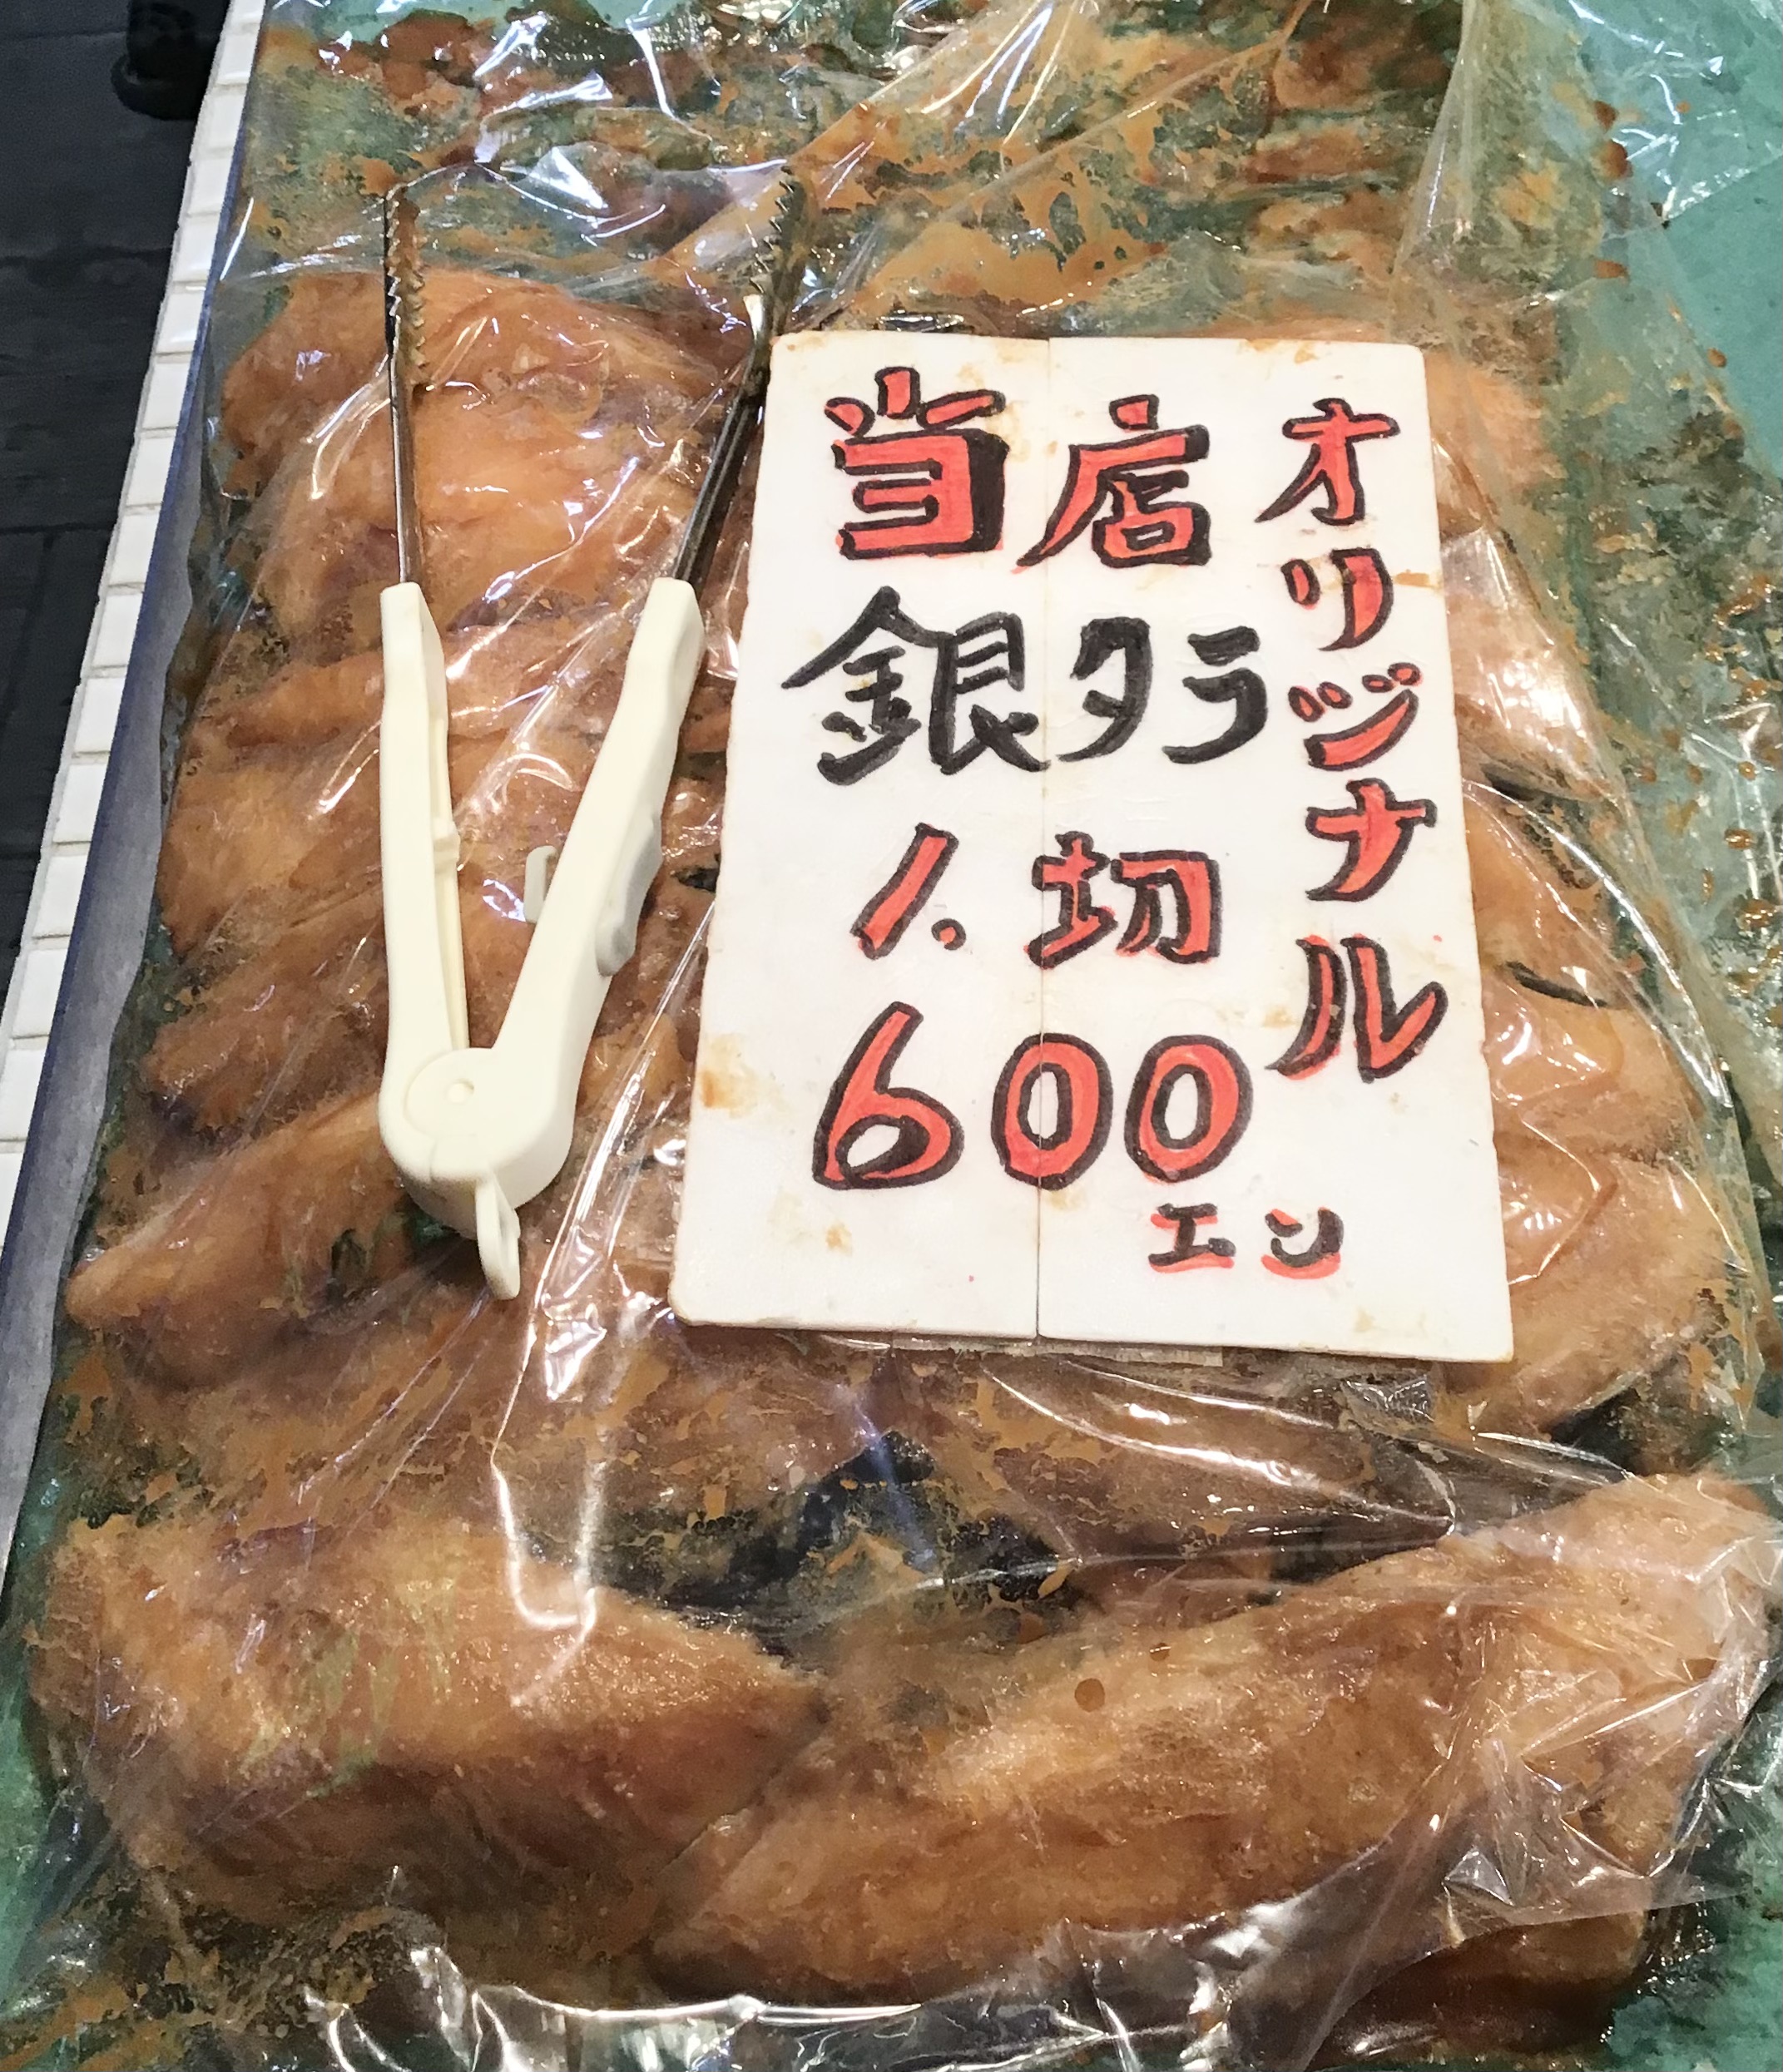 当店
オリジナル
銀タラ
1.切
600
エン